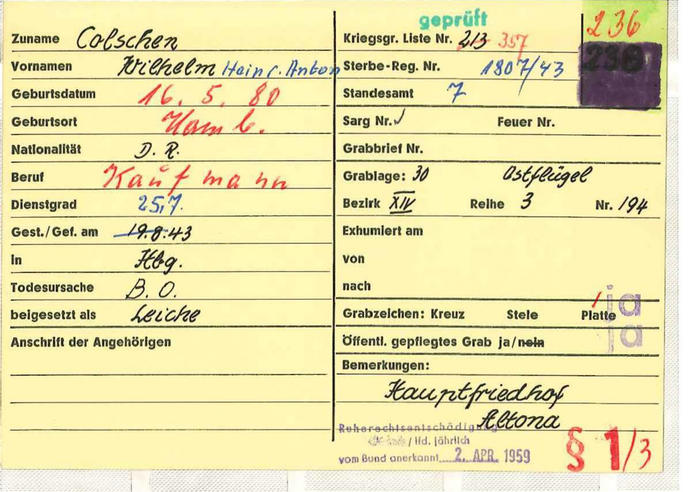 geprüft
Zuname Colschen
Vornamen Wilhelm Heinr. Anton
Geburtsdatum 16. 5. 80
Geburtsort Hamb.
Nationalität D. R.
Beruf Kaufmann
Dienstgrad 25.7.
Gest./Gef. am 19.8.43
in Hbg.
Todesursache B. O.
beigesetzt als Leiche
Anschrift der Angehörigen
Kriegsgr. Liste Nr. 213 357
236
236
Sterbe-Reg. Nr. 1807/43
Standesamt 7
Sarg Nr. Feuer Nr.
Grabbrief Nr.
Grablage: 30 Ostflügel
Bezirk XIV Reihe 3 Nr. 194
Exhumiert am
von
nach
Grabzeichen: Kreuz Stele Platte ja
Öffentl. gepflegtes Grab ja/nein ja
Bemerkungen:
Hauptfriedhof
Altona
Ruherechtsentschädigung
/ lfd. jährlich
vom Bund anerkannt 2. APR. 1959
§ 1/3